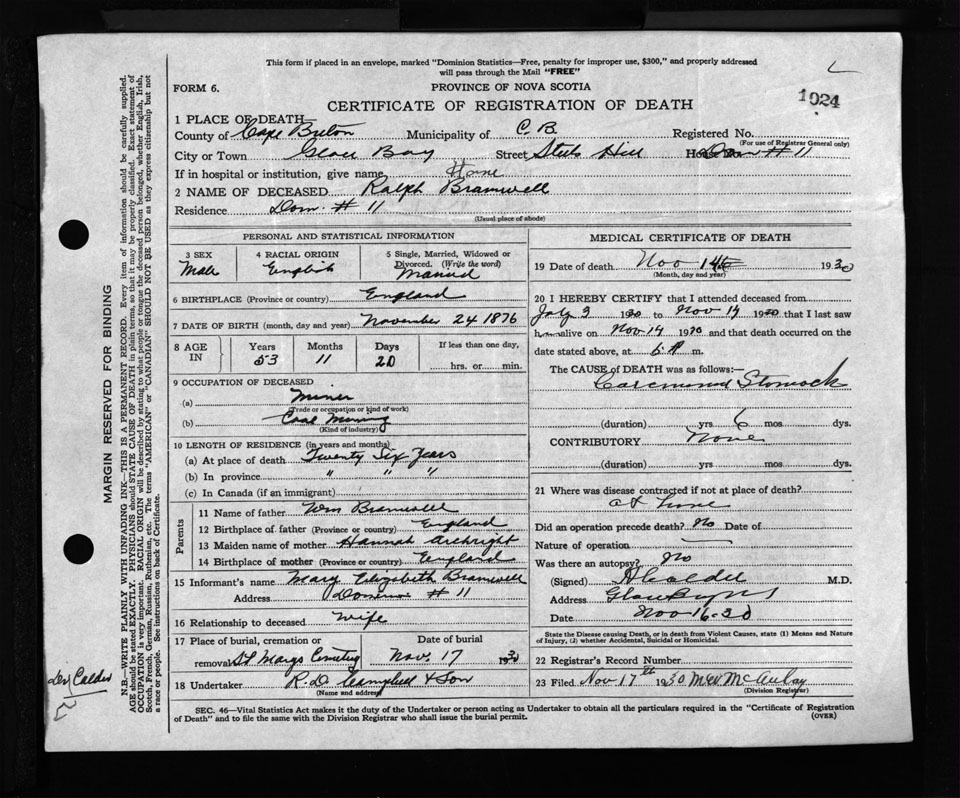 This form if placed in an envelope, marked "Dominion Statistics—Free, penalty for improper use, $300," and properly addressed
will pass through the Mail "FREE"
FORM 6.
PROVINCE OF NOVA SCOTIA
1024
CERTIFICATE OF REGISTRATION OF DEATH
1 PLACE OF DEATH
County of Cape Breton Municipality of C. B. Registered No.
(For use of Registrar General only)
City or Town Glace Bay Street Hill House No. Dom # 11
If in hospital or institution, give name Home
2 NAME OF DECEASED Ralph Bramwell
Residence Dom. # 11
(Usual place of abode)
PERSONAL AND STATISTICAL INFORMATION
3 SEX
Male
4 RACIAL ORIGIN
English
5 Single, Married, Widowed or
Divorced. (Write the word)
Married
6 BIRTHPLACE (Province or country) England
7 DATE OF BIRTH (month, day and year) November 24 1876
8 AGE IN
Years 53
Months 11
Days 20
If less than one day,
hrs. or min.
9 OCCUPATION OF DECEASED
(a) Miner
(Trade or occupation or kind of work)
(b) Coal Mining
(Kind of industry)
10 LENGTH OF RESIDENCE (in years and months)
(a) At place of death Twenty Six Years
(b) In province " " "
(c) In Canada (if an immigrant)
Parents
11 Name of father Wm Bramwell
12 Birthplace of father (Province or country) England
13 Maiden name of mother Hannah Arkright
14 Birthplace of mother (Province or country) England
15 Informant's name Mary Elizabeth Bramwell
Address Dominion # 11
16 Relationship to deceased wife
17 Place of burial, cremation or
removal St Marys Cemetery
Date of burial
Nov. 17 1930
18 Undertaker R. D. Campbell & Son
(Name and address)
MEDICAL CERTIFICATE OF DEATH
19 Date of death Nov 14th 1930
(Month, day and year)
20 I HEREBY CERTIFY that I attended deceased from
July 2 1930 to Nov 14 1930 that I last saw
him alive on Nov 14 1930 and that death occurred on
date stated above, at m.
The CAUSE of DEATH was as follows:—
Carcinoma Stomach
(duration) yrs 6 mos. dys.
CONTRIBUTORY None
(duration) yrs mos. dys.
21 Where was disease contracted if not at place of death?
at home
Did an operation precede death? No Date of
Nature of operation —
Was there an autopsy? No
(Signed) A Calder M.D.
Address Glace Bay NS
Date Nov 16-30
State the Disease causing Death, or in death from Violent Causes, state (1) Means and Nature
of Injury, (2) whether Accidental, Suicidal or Homicidal.
22 Registrar's Record Number
23 Filed Nov 17th 1930 McAulay
(Division Registrar)
SEC. 46—Vital Statistics Act makes it the duty of the Undertaker or person acting as Undertaker to obtain all the particulars required in the "Certificate of Registration
of Death" and to file the same with the Division Registrar who shall issue the burial permit.
(OVER)
MARGIN RESERVED FOR BINDING
N.B—WRITE PLAINLY WITH UNFADING INK—THIS IS A PERMANENT RECORD. Every item of information should be carefully supplied.
AGE should be stated EXACTLY. PHYSICIANS should STATE CAUSE OF DEATH in plain terms, so that it may be properly classified. Exact statement of
OCCUPATION is very important. RACIAL ORIGIN will be described by stating to what people or tongue the deceased person belonged, whether English, Irish,
Scotch, French, German, Russian, Ruthenian, etc. The terms "AMERICAN" or "CANADIAN" SHOULD NOT BE USED as they express citizenship but not
a race or people. See instructions on back of Certificate.
Calder